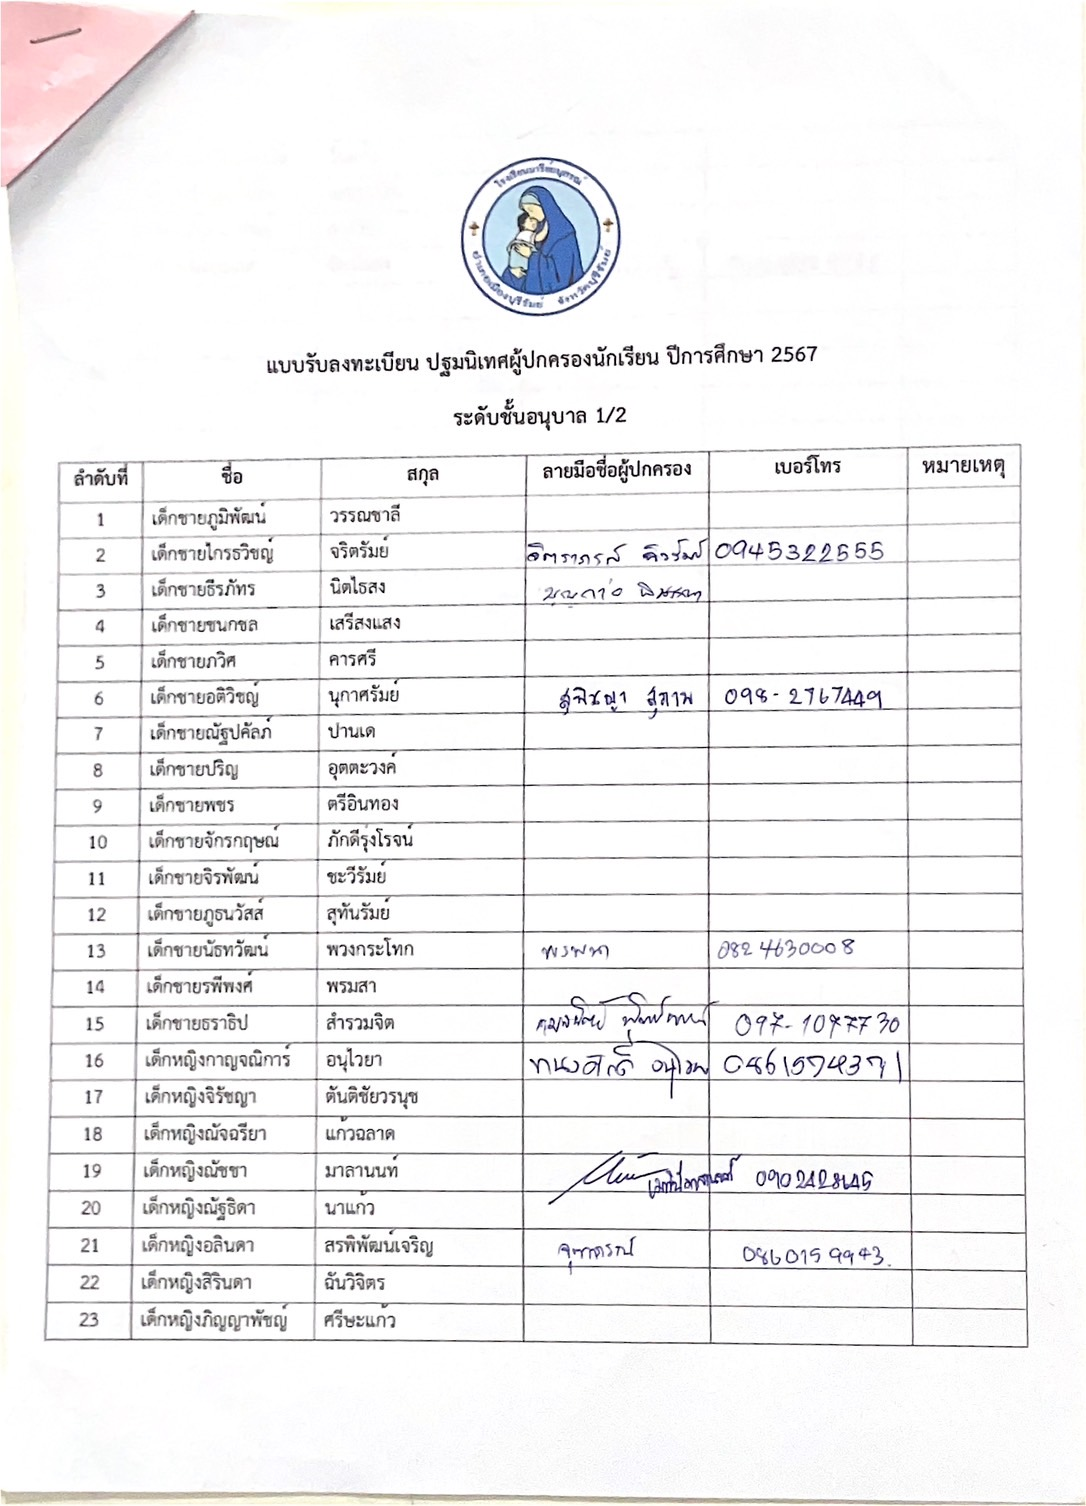 โรงเรียนมารีย์อนุสรณ์
อำเภอเมืองบุรีรัมย์ จังหวัดบุรีรัมย์
แบบรับลงทะเบียน ปฐมนิเทศผู้ปกครองนักเรียน ปีการศึกษา 2567
ระดับชั้นอนุบาล 1/2
ลำดับที่ ชื่อ สกุล ลายมือชื่อผู้ปกครอง เบอร์โทร หมายเหตุ
1 เด็กชายภูมิพัฒน์ วรรณชาลี
2 เด็กชายไกรธวิชญ์ จริตรัมย์ 0945322555
3 เด็กชายธีรภัทร นิตไธสง
4 เด็กชายชนกชล เสรีสงแสง
5 เด็กชายภวิศ คารศรี
6 เด็กชายอติวิชญ์ นุกาศรัมย์ สุพิชญา สุภาพ 098-2767449
7 เด็กชายณัฐปคัลภ์ ปานเด
8 เด็กชายปริญ อุตตะวงค์
9 เด็กชายพชร ตรีอินทอง
10 เด็กชายจักรกฤษณ์ ภักดีรุ่งโรจน์
11 เด็กชายจิรพัฒน์ ชะวีรัมย์
12 เด็กชายภูธนวัสส์ สุทันรัมย์
13 เด็กชายนัธทวัฒน์ พวงกระโทก 0824630008
14 เด็กชายรพีพงศ์ พรมสา
15 เด็กชายธราธิป สำรวมจิต 097-1077730
16 เด็กหญิงกาญจณิการ์ อนุไวยา ทนงศักดิ์
17 เด็กหญิงจิรัชญา ตันติชัยวรนุช
18 เด็กหญิงณัจฉรียา แก้วฉลาด
19 เด็กหญิงณัชชา มาลานนท์
20 เด็กหญิงณัฐธิดา นาแก้ว
21 เด็กหญิงอลินดา สรพิพัฒน์เจริญ จุฑาภรณ์ 0860159943.
22 เด็กหญิงสิรินดา ฉันวิจิตร
23 เด็กหญิงภิญญาพัชญ์ ศรีษะแก้ว